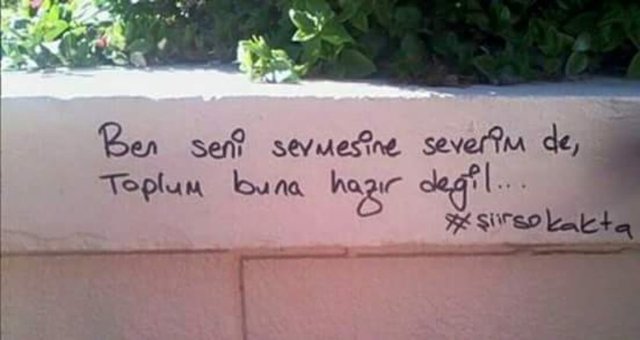 Ben seni sevmesine severim de,
Toplum buna hazır değil...
#şiirsokakta